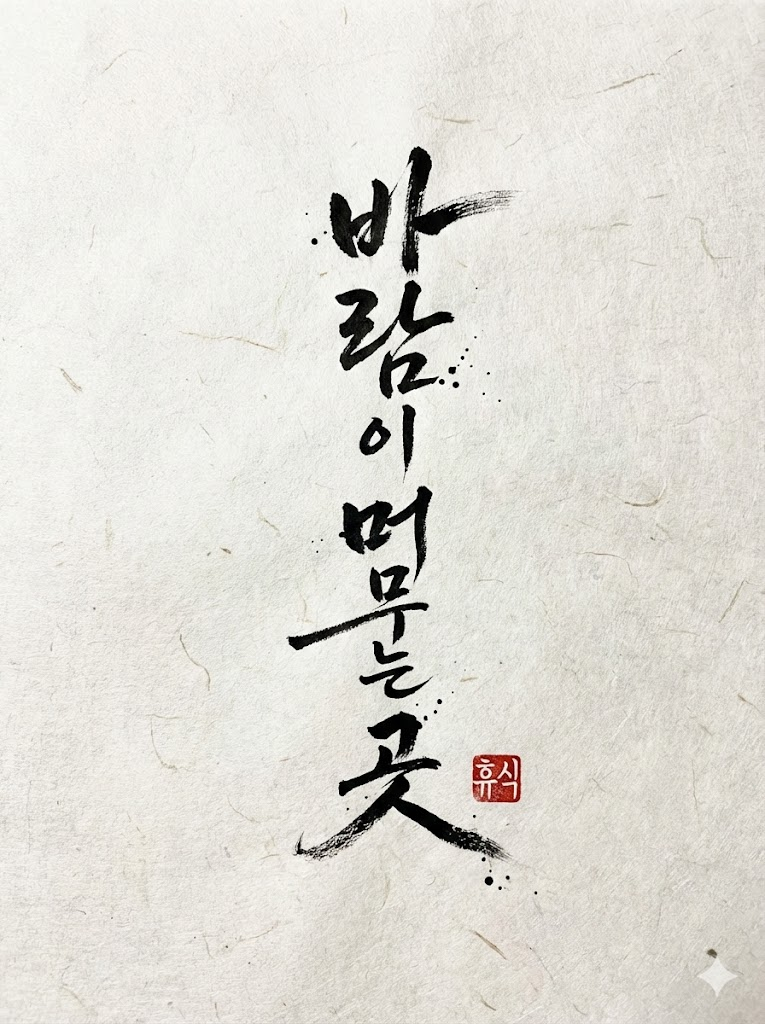 바람이 머무는 곳
휴식